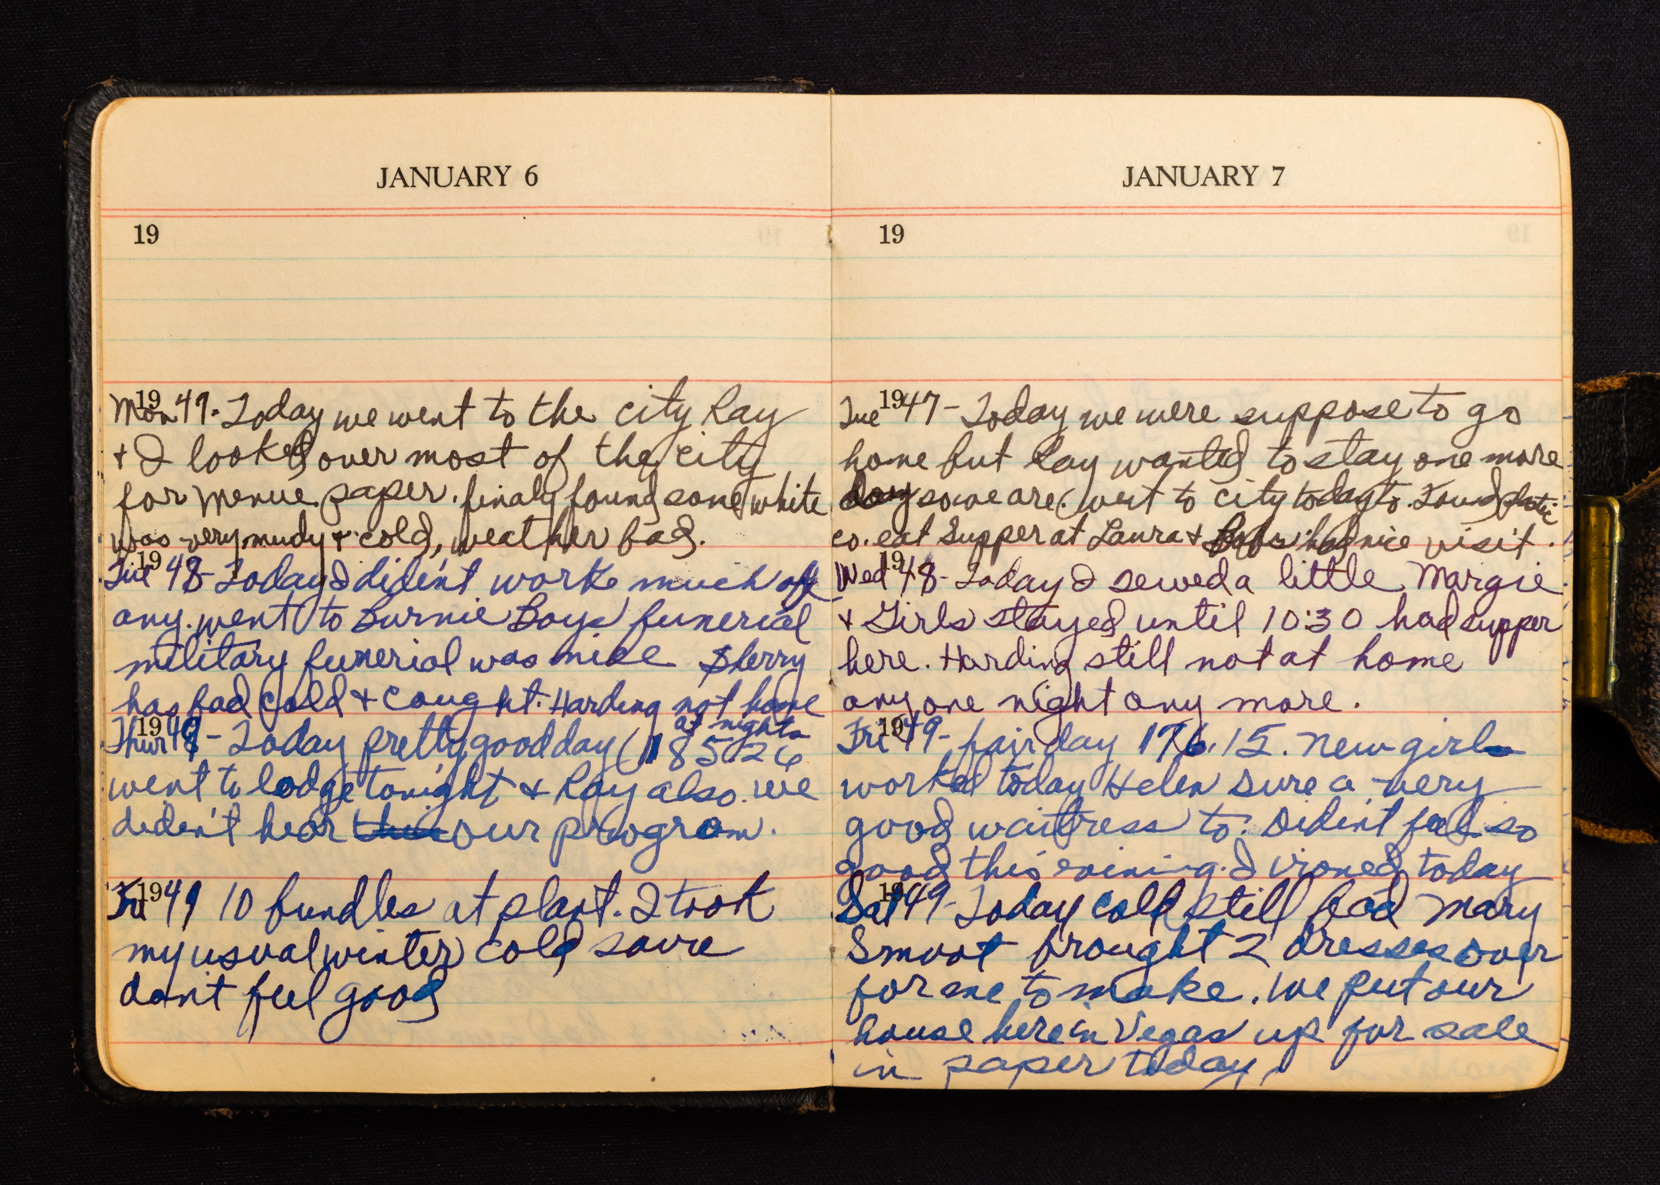 JANUARY 6
19
19
Mon 47. Today we went to the city Ray
+ I looked over most of the city
for menue paper. finaly found some white
was very mudy + cold, weather bad.
19
Tue 48 - Today I did'nt work much off
any. went to Burnie Boys funerial
military funerial was nice Sherry
has bad cold + cought. Harding not home
at nights
19
Thur 49 - Today pretty good day (185.26
went to lodge tonight + Ray also. we
diden't hear our program.
19
Fri 49 10 bundles at plant. I took
my usual winter cold
don't feel good
JANUARY 7
19
19
Tue 47 - Today we were suppose to go
home but Ray wanted to stay one more
day so we are. went to city today to. Found
co. eat Supper at Laura + had nice visit.
19
Wed 48 - Today I sewed a little Margie
+ Girls stayed until 10:30 had supper
here. Harding still not at home
any one night any more.
19
Fri 49 - fair day 176.15. new girl
worked today Helen sure a very
good waitress to. Diden't feel so
good this evining. I ironed today
19
Sat 49 - Today cold still bad Mary
Smoot brought 2 dresses over
for me to make. We put our
house here in Vegas up for sale
in paper today.